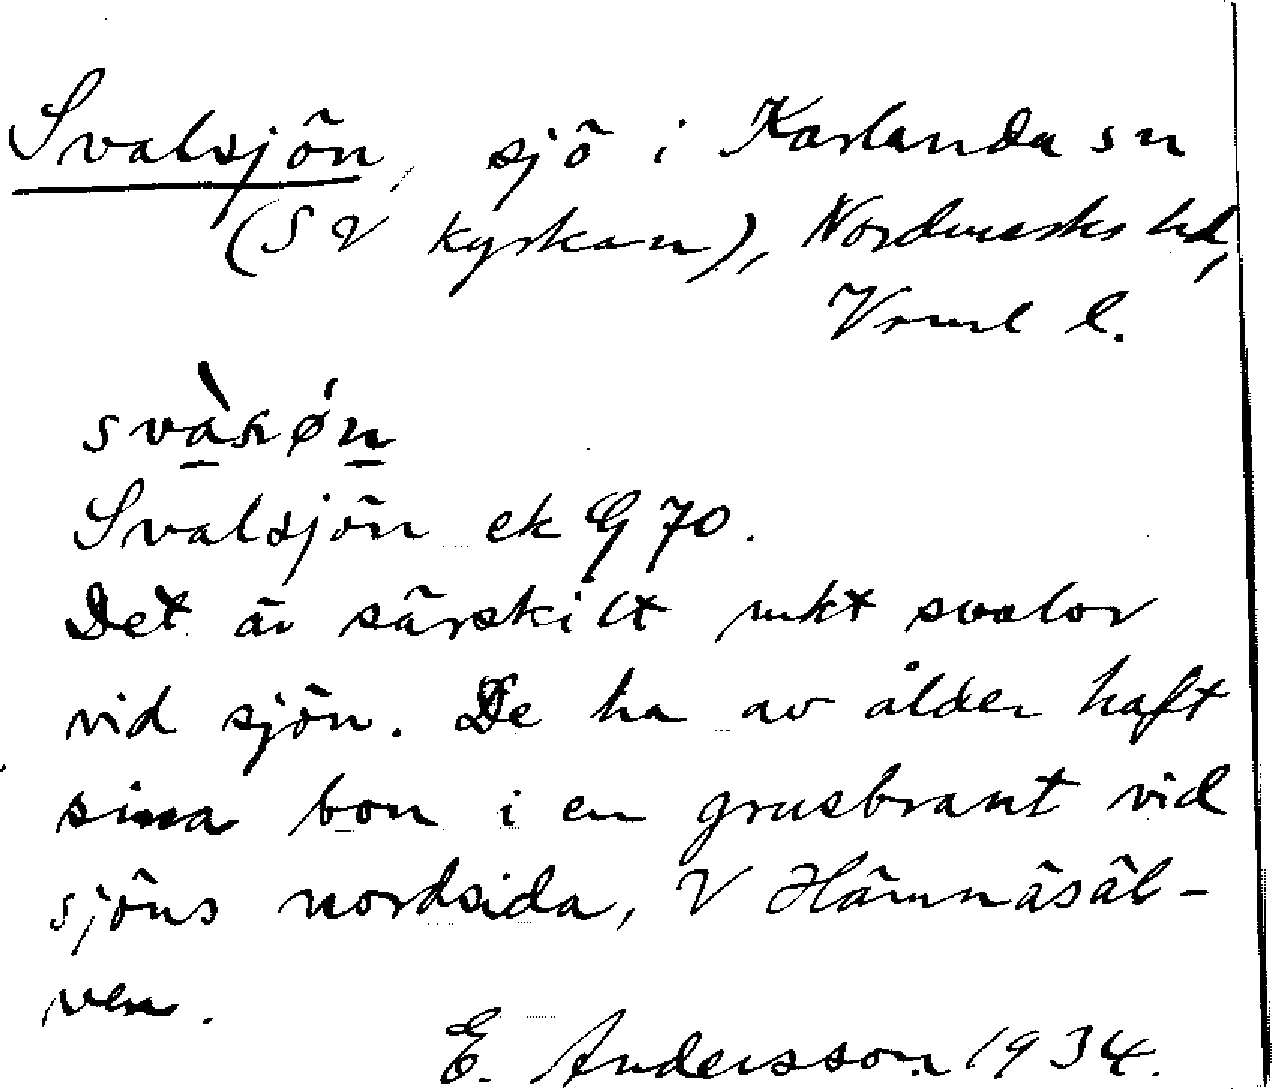 Svalsjön, sjö i Karlanda sn
(SV kyrkan), Nordmarks hd,
Vrml l.
Svalsjön ek G 70.
Det är särskilt mkt svalor
vid sjön. De ha av ålder haft
sina bon i en grusbrant vid
sjöns nordsida, V Hämnäsäl-
ven.
E. Andersson 1934.